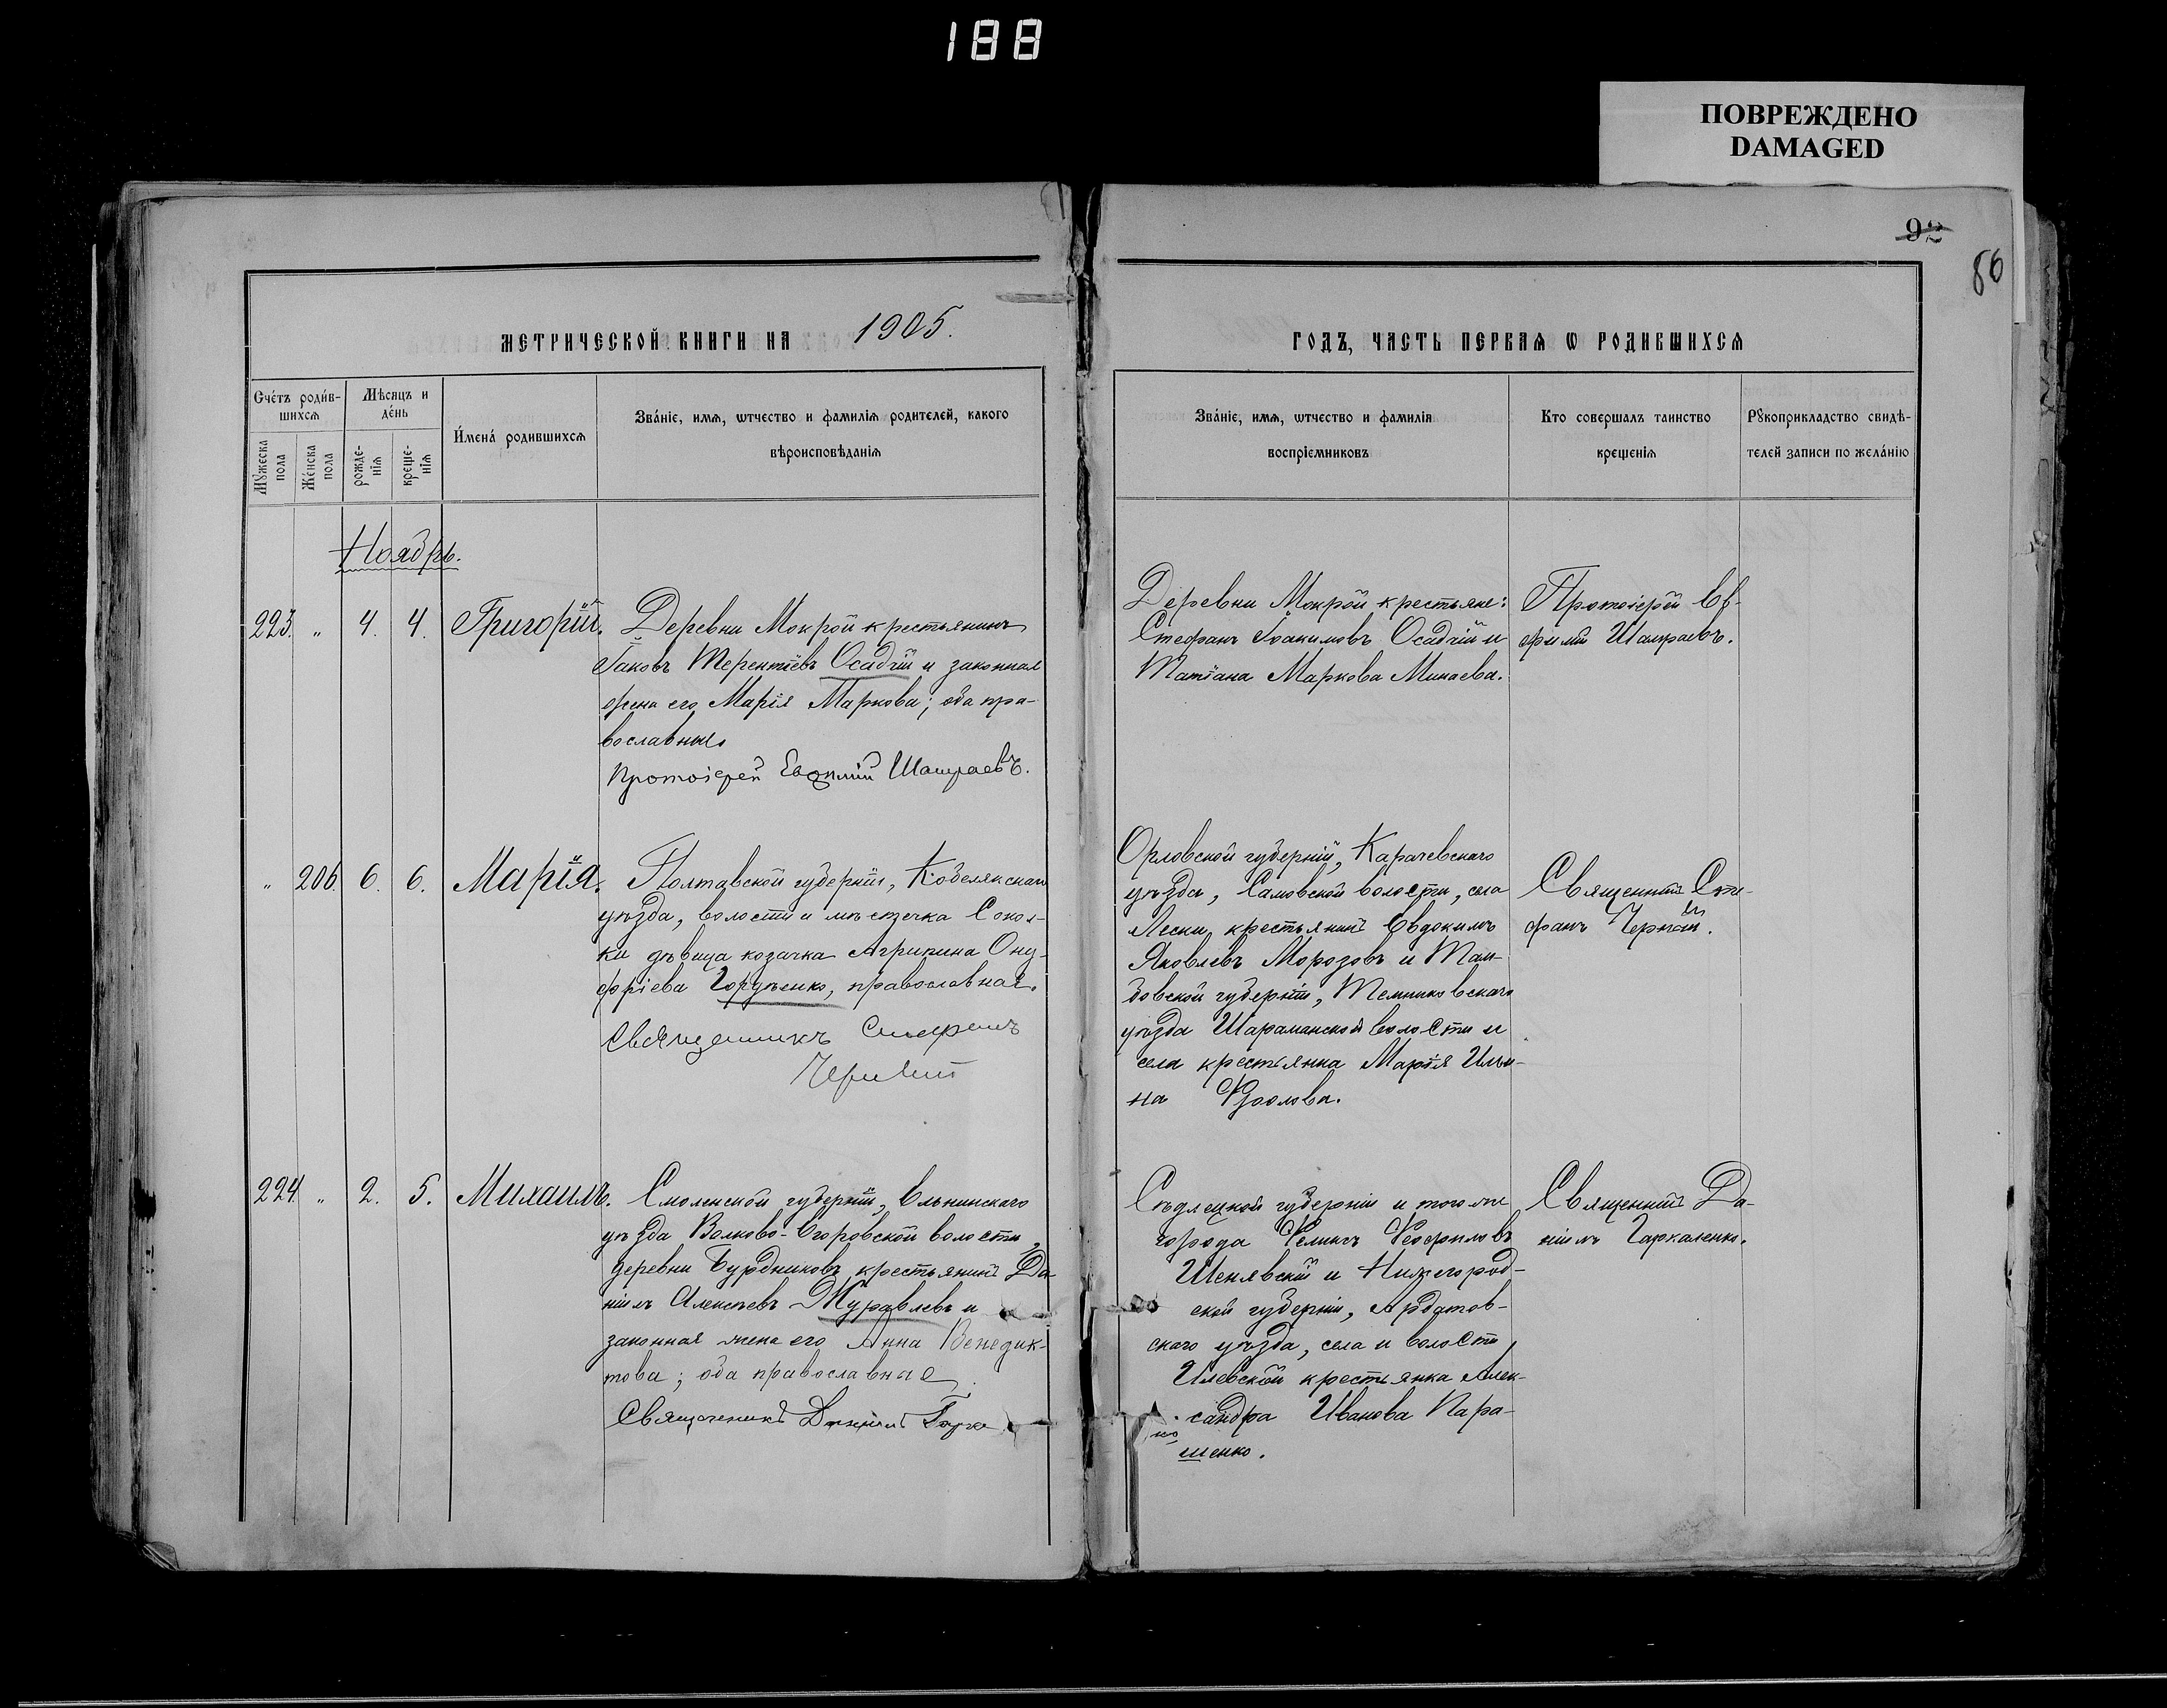 188
ПОВРЕЖДЕНО
DAMAGED
92
86
МЕТРИЧЕСКОЙ КНИГИ НА 1905.
ГОДЪ, ЧАСТЬ ПЕРВАЯ Ѡ РОДИВШИХСЯ
Счетъ родившихся
Мѣсяцъ и день
Имена родившихся
Званіе, имя, ѡтчество и фамилія родителей, какого
вѣроисповѣданія
Мужеска пола
Женска пола
рожденія
крещенія
Званіе, имя, ѡтчество и фамилія
воспріемниковъ
Кто совершалъ таинство
крещенія
Рукоприкладство свидѣ-
телей записи по желанію
Ноябрь.
223. „ 4. 4. Григорій.
Деревни Мокрой крестьянинъ
Іаковъ Терентіевъ Осадчій и законная
жена его Марія Маркова; оба пра-
вославные
Протоіерей Евфимій Шамраевъ.
Деревни Мокрой крестьяне:
Стефанъ Іоакимовъ Осадчій и
Татіана Маркова Минаева.
Протоіерей Ев-
фимій Шамраевъ.
„ 206. 6. 6. Марія.
Полтавской губерніи, Кобелякскаго
уѣзда, волости и мѣстечка Сокол-
ки дѣвица козачка Агрипина Ону-
фріева, православная.
Священникъ Стефанъ
Орловской губерніи, Карачевскаго
уѣзда, волости, села
Лески, крестьянинъ Евдокимъ
Яковлевъ Морозовъ и Там-
бовской губерніи, Темниковскаго
уѣзда волости и
села крестьянка Марія Ильи-
на
Священникъ Сте-
фанъ
224. „ 2. 5. Михаилъ.
Смоленской губерніи, Ельнинскаго
уѣзда Волково-Егоровской волости,
деревни Бурдниковъ крестьянинъ Да-
ніилъ Алексѣевъ Журавлевъ и
законная жена его Анна Венедик-
това; оба православные
Священникъ Даніилъ
Сѣдлецкой губерніи и того же
города Феликсъ Феофиловъ
Шенявскій и Нижегород-
ской губерніи, Ардатов-
скаго уѣзда, села и волости
Илевской крестьянка Алек-
сандра Иванова Пара-
шенко.
Священникъ Да-
ніилъ Гаркаленко.